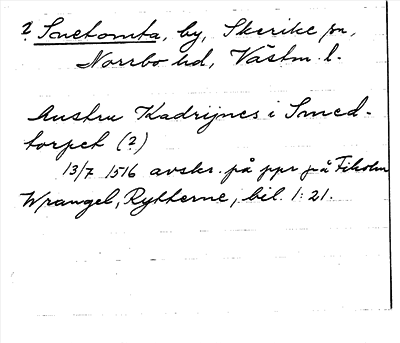 ? Snetomta, by, Skerike sn,
Norrbo hd, Västm. l.
Austru Kadrijnes i Smed-
torpet (?)
13/7 1516 avskr. på ppr på Fiholm
Wrangel, Rytterne, bil. 1:21.